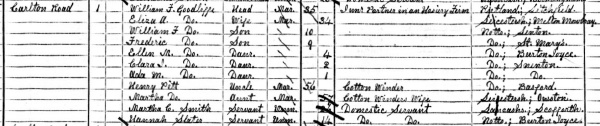 Carlton Road 1 William F. Goodliffe Head Mar. 35 Junr Partner in an Hosiery Firm Rutland;
Eliza A. Do. Wife Mar. 34 Leicestersh; Melton Mowbray
William F. Do. Son 10 Notts; Lenton
Frederic Do. Son 9 Do.; St. Mary's
Ellen M. Do. Daur. 4 Do.; Burton Joyce
Clara I. Do. Daur. 2 Do.; Sneinton
Ada M. Do. Daur. 1 Do.; Do.
Henry Pitt Uncle Mar. 56 Cotton Winder Do.; Basford
Martha Do. Aunt Mar. Cotton Winders Wife Leicestersh;
Martha E. Smith Servant Unm. Domestic Servant
Hannah Slater Servant Unm. 14 Do. Do. Notts; Burton Joyce